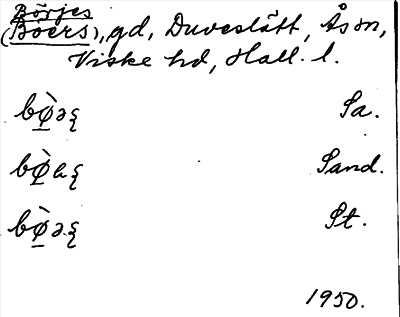 Börjes
(Böers), gd, Duveslätt, Ås sn,
Viske hd, Hall. l.
bø̠̀əʂ Sa.
bø̠̀aʂ Sand.
bø̠̀əʂ St.
1950.